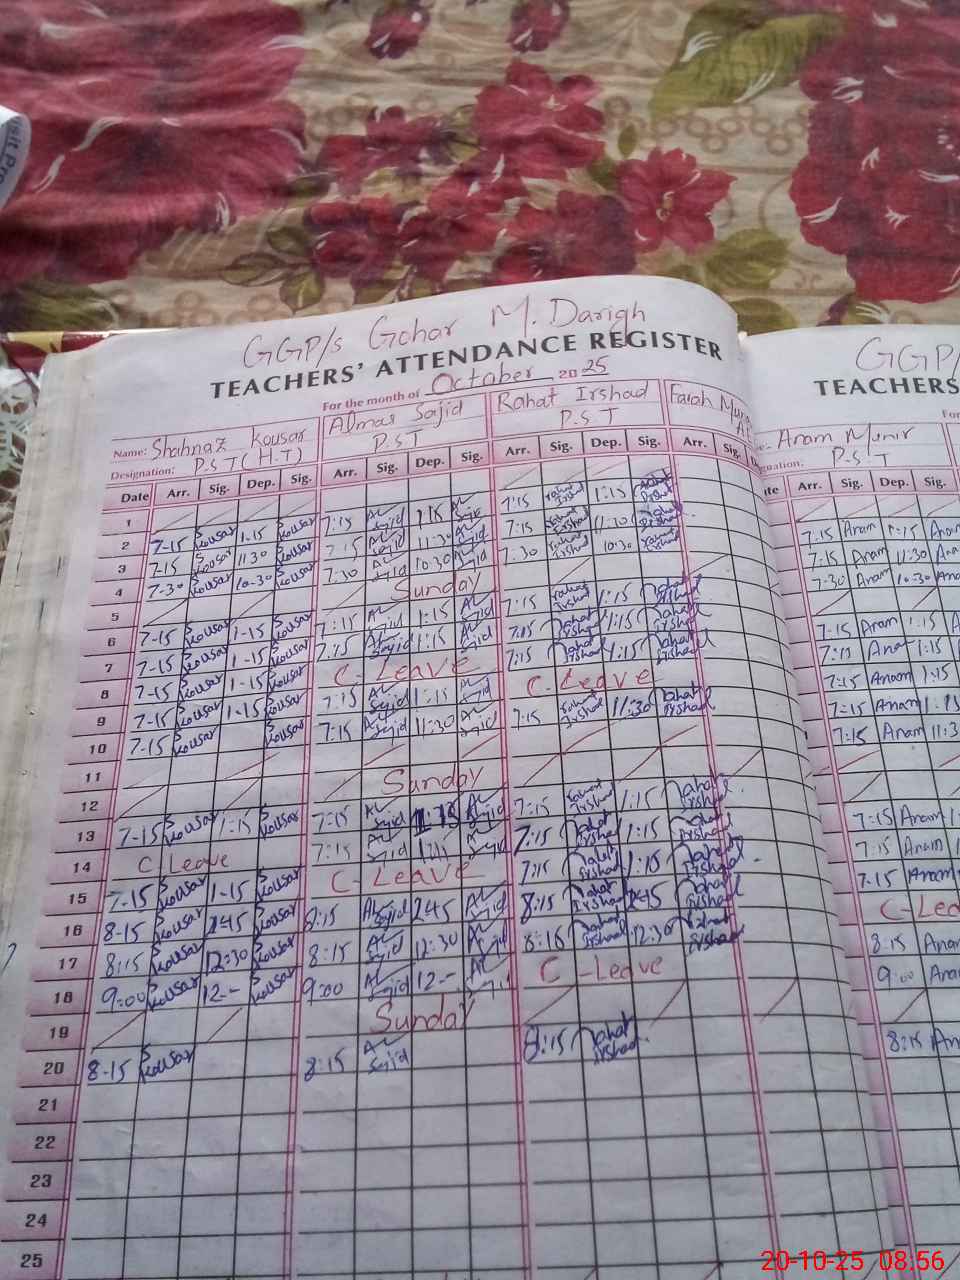 GGP/s Gohar M. Darigh
TEACHERS' ATTENDANCE REGISTER
For the month of October 2025
Name: Shahnaz Kousar Almas Sajid Rahat Irshad Farah
Designation: P.S.T (H.T) P.S.T P.S.T
Date Arr. Sig. Dep. Sig. Arr. Sig. Dep. Sig. Arr. Sig. Dep. Sig. Arr. Sig.
1
2 7-15 Kousar 1-15 Kousar 7:15 Sajid 1:15 7:15 Rahat Irshad 1:15 Rahat Irshad
3 7-15 Kousar 11:30 Kousar 7:15 Sajid 11:30 Sajid 7:15 Rahat Irshad 11:30 Rahat Irshad
4 7-30 Kousar 10-30 Kousar 7:30 Sajid 10:30 Sajid 7:30 Rahat Irshad 10:30 Rahat Irshad
5 Sunday
6 7-15 Kousar 1-15 Kousar 7:15 Sajid 1:15 Sajid 7:15 Rahat Irshad 1:15 Rahat Irshad
7 7-15 Kousar 1-15 Kousar 7:15 Sajid 1:15 Sajid 7:15 Rahat Irshad 1:15 Rahat Irshad
8 7-15 Kousar 1-15 Kousar C-Leave 7:15 Rahat Irshad 1:15 Rahat Irshad
9 7-15 Kousar 1-15 Kousar 7:15 Sajid 1:15 Sajid C-Leave
10 7-15 Kousar Kousar 7:15 Sajid 11:30 Sajid 7:15 Rahat Irshad 11:30 Rahat Irshad
11
12 Sunday
13 7-15 Kousar 1:15 Kousar 7:15 Sajid 1:15 Sajid 7:15 Rahat Irshad 1:15 Rahat Irshad
14 C Leave 7:15 Sajid Sajid 7:15 Rahat Irshad 1:15 Rahat Irshad
15 7-15 Kousar 1-15 Kousar C-Leave 7:15 Rahat Irshad 1:15 Rahat Irshad
16 8-15 Kousar 2:45 Kousar 8:15 Sajid 2:45 Sajid 8:15 Rahat Irshad 2:45 Rahat Irshad
17 8:15 Kousar 12:30 Kousar 8:15 Sajid 12:30 Sajid 8:16 Rahat Irshad 12:30 Rahat Irshad
18 9:00 Kousar 12-- Kousar 9:00 Sajid 12-- Sajid C-Leave
19 Sunday
20 8-15 Kousar 8:15 Sajid 8:15 Rahat Irshad
21
22
23
24
25
GGP/
TEACHERS
Anam Munir
P.S.T
Arr. Sig. Dep. Sig.
7:15 Anam 1:15 Anam
7:15 Anam 11:30 Anam
7-30 Anam 10:30
7-15 Anam 1:15
7:15 Anam 1:15
7:15 Anam 1:15
7:15 Anam
7:15 Anam 11:3
7:15 Anam
7:15 Anam
7-15 Anam
C-Lea
8:15 Anam
9:00
8:15
20-10-25 08:56